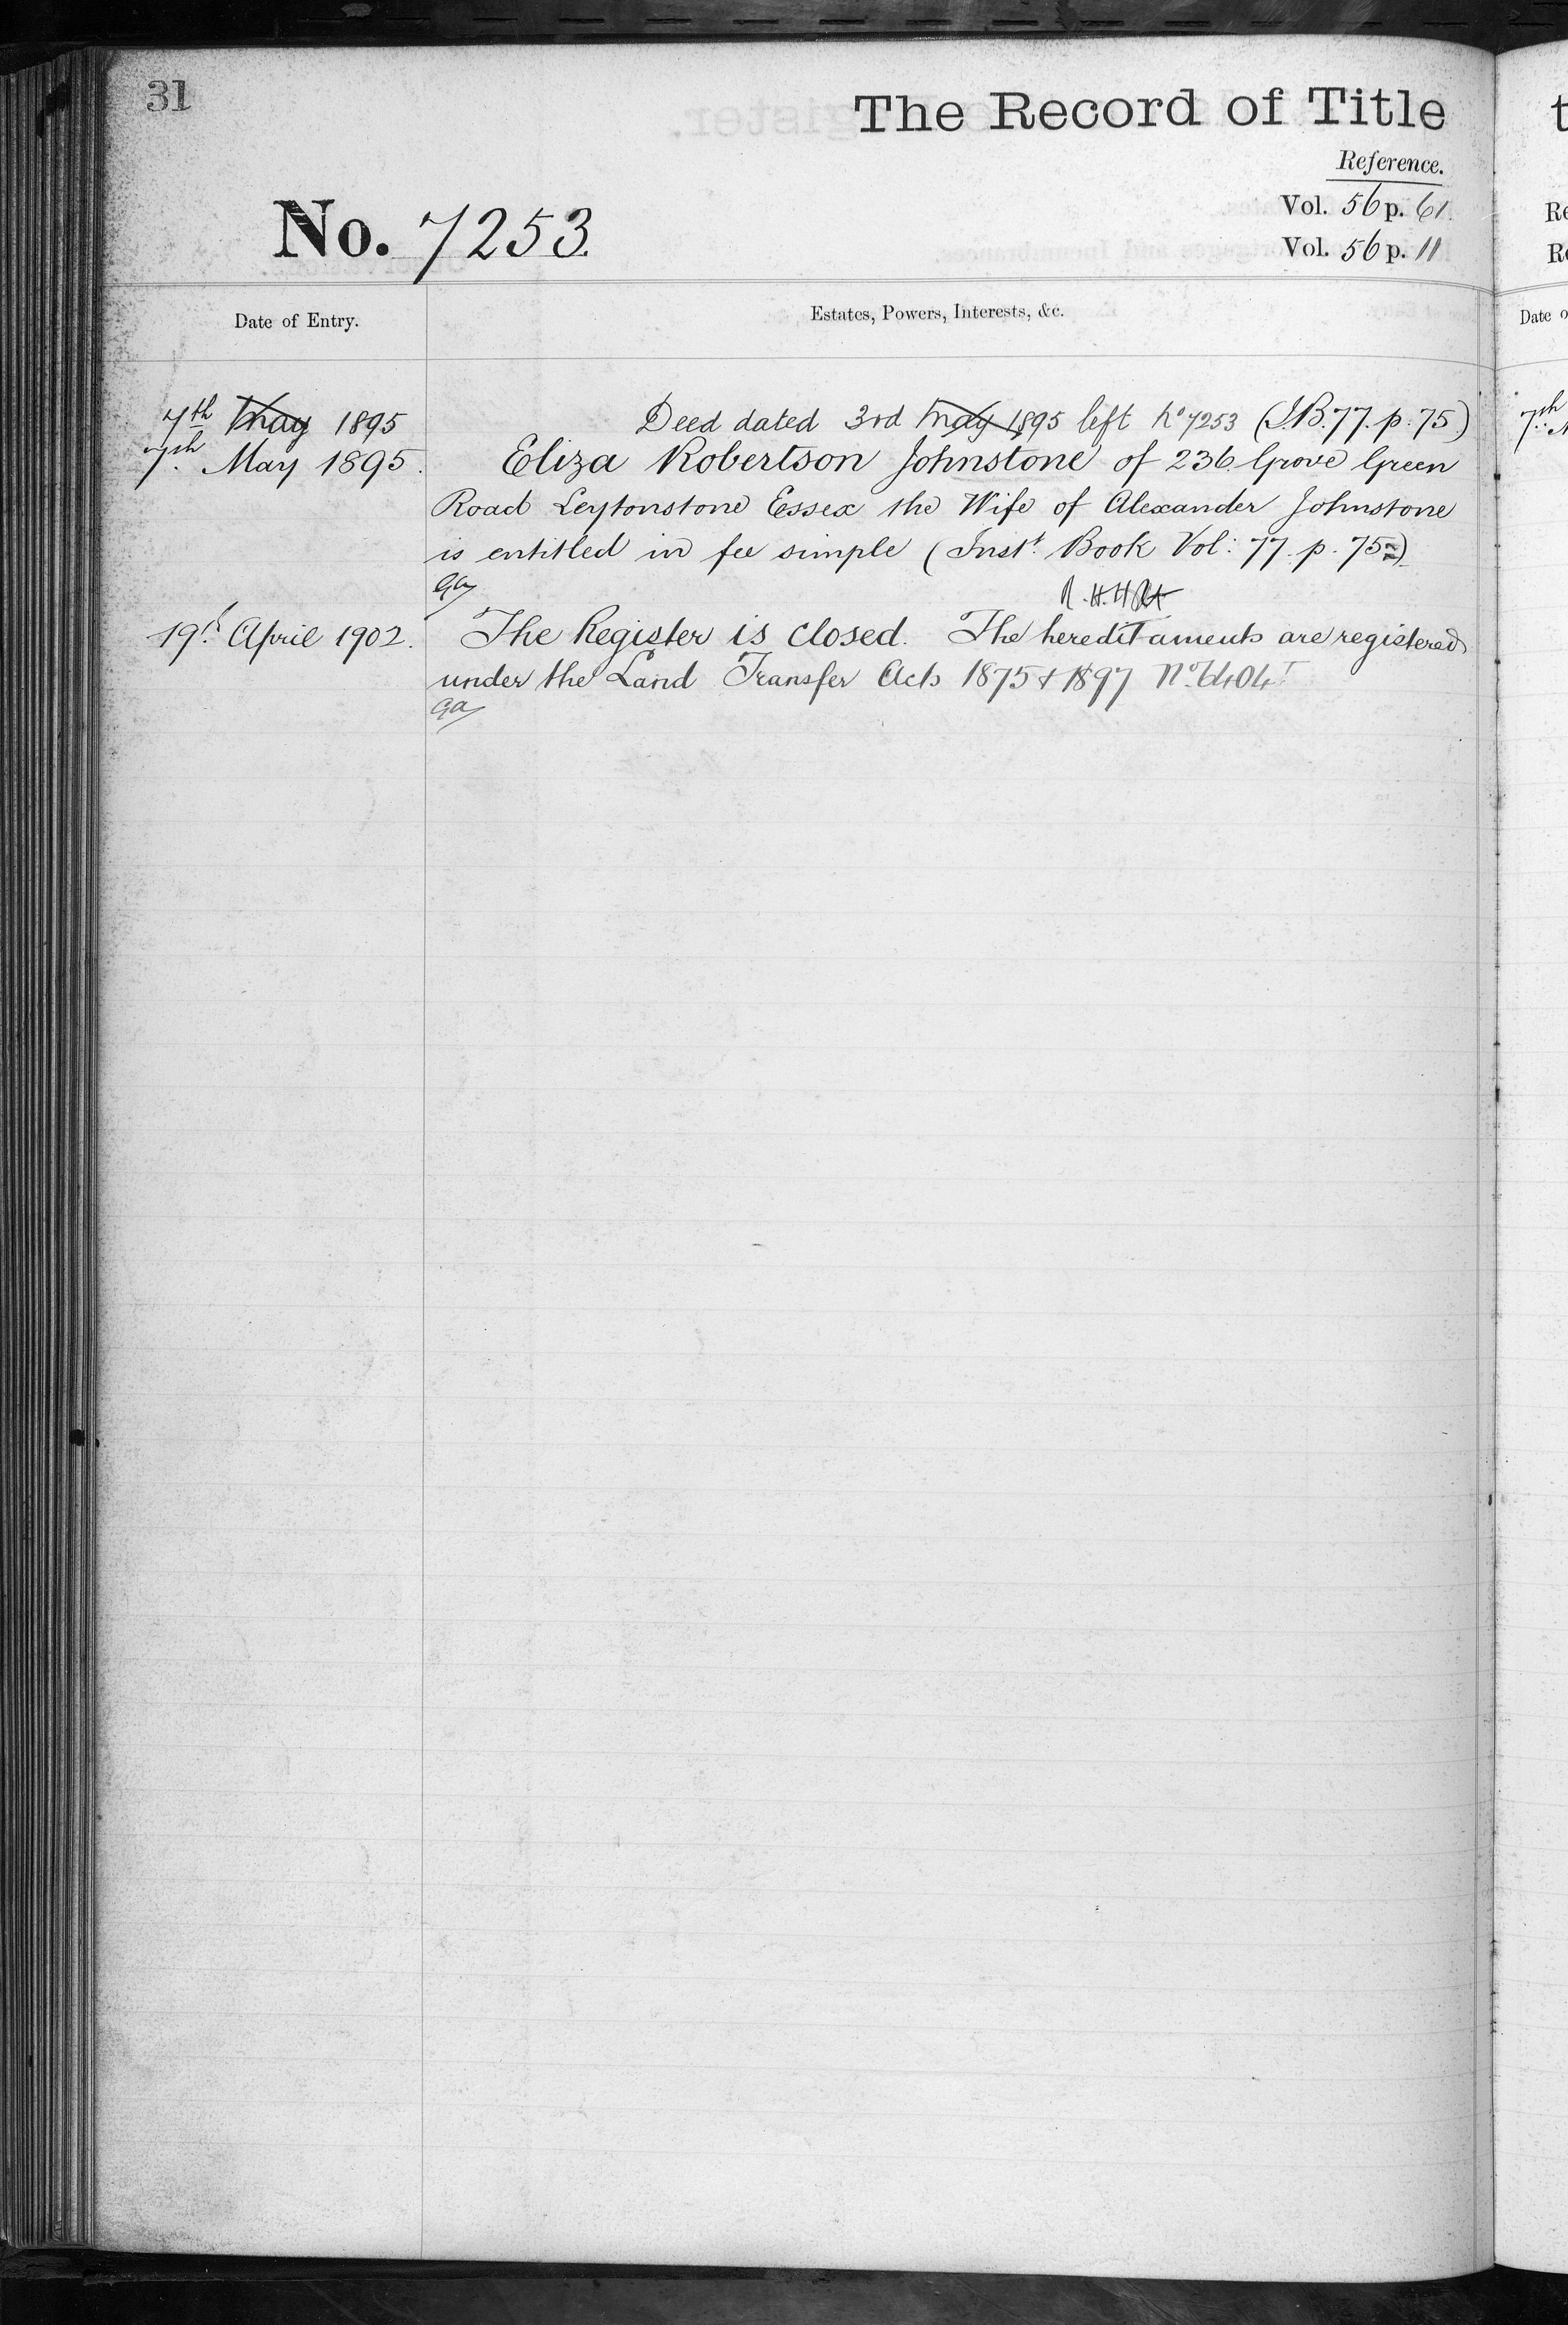 31
The Record of Title
Reference.
No. 7253.
Vol. 56 p. 61.
Vol. 56 p. 11
Date of Entry.
Estates, Powers, Interests, &c.
7th May 1895
Deed dated 3rd May 1895 left No 7253 (I.B. 77. p. 75)
7th May 1895.
Eliza Robertson Johnstone of 236 Grove Green
Road Leytonstone Essex the Wife of Alexander Johnstone
is entitled in fee simple (Inst. Book Vol: 77. p. 75)
19th April 1902.
The Register is closed. The hereditaments are registered
under the Land Transfer Acts 1875 & 1897 No 6404
t
Re
Re
Date o
7th M